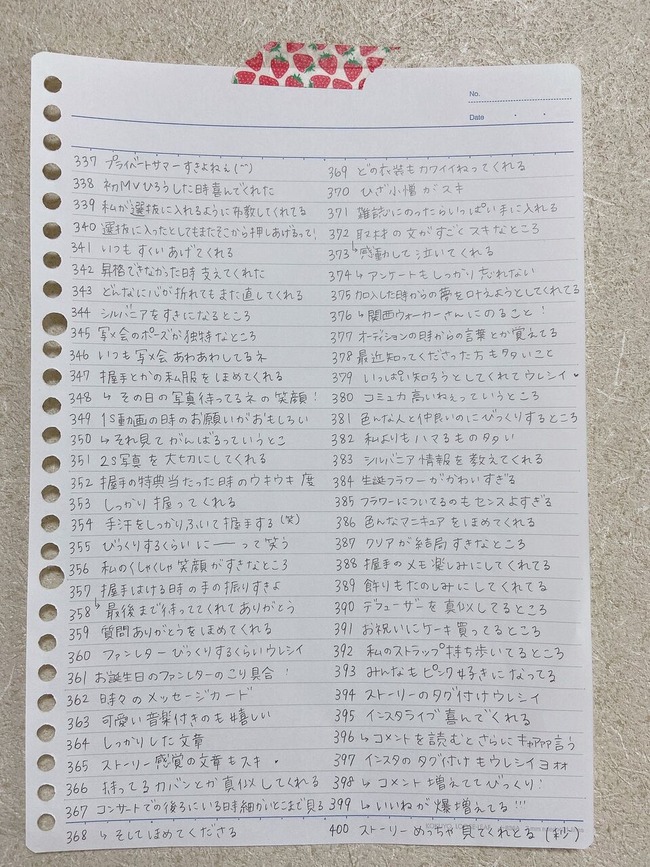 No.
Date
337 プライベートサマーすきよねぇ(^^)
338 初MVひろうした時喜んでくれた
339 私が選抜に入れるように布教してくれてる
340 選抜に入ったとしてもまたそこから押しあげるって!
341 いつもすくいあげてくれる
342 昇格できなかった時支えてくれた
343 どんなに心が折れてもまた直してくれる
344 シルバニアをすきになるところ
345 写メ会のポーズが独特なところ
346 いつも写メ会あわあわしてるネ
347 握手とかの私服をほめてくれる
348 ↳ その日の写真待ってるネの笑顔!
349 1S動画の時のお願いがおもしろい
350 ↳ それ見てがんばるっていうとこ
351 2S写真を大切にしてくれる
352 握手の特典当たった日のウキウキ度
353 しっかり握ってくれる
354 手汗をしっかりふいて握手する(笑)
355 びっくりするくらいにーーって笑う
356 私のくしゃくしゃ笑顔がすきなところ
357 握手はける時の手の振りすきよ
358 ↳ 最後まで待っててくれてありがとう
359 質問ありがとうをほめてくれる
360 ファンレターびっくりするくらいウレシイ
361 お誕生日のファンレターのこり具合!
362 時々のメッセージカード
363 可愛い音楽付きのも嬉しい
364 しっかりした文章
365 ストーリー感覚の文章もスキ・
366 持ってるカバンとか真似してくれる
367 コンサートでの後ろにいる時細かいとこまで見る
368 ↳ そしてほめてくださる
369 どの衣装もカワイイねってくれる
370 ひざ小僧がスキ
371 雑誌にのったらいっぱい手に入れる
372 取材の文がすごとスキなところ
373 ↳ 感動して泣いてくれる
374 ↳ アンケートもしっかり忘れない
375 加入した時からの夢を叶えようとしてくれてる
376 ↳ 関西ウォーカーさんにのること!
377 オーディションの時からの言葉とか覚えてる
378 最近知ってくださった方も多いこと
379 いっぱい知ろうとしてくれてウレシイ♥
380 コミュ力高いねぇっていうところ
381 色んな人と仲良いのにびっくりするところ
382 私よりもハマるもの多い
383 シルバニア情報を教えてくれる
384 生誕フラワーがかわいすぎる
385 フラワーについてるのもセンスよすぎる
386 色んなマニキュアをほめてくれる
387 クリアが結局すきなところ
388 握手のメモ楽しみにしてくれてる
389 飾りもたのしみにしてくれてる
390 デューザーを真似してるところ
391 お祝いにケーキ買ってるところ
392 私のストラップ持ち歩いてるところ
393 みんなもピンク好きになってる
394 ストーリーのタグ付けウレシイ
395 インスタライブ喜んでくれる
396 ↳ コメントを読むとさらにキャアァァ言う
397 インスタのタグ付けもウレシイヨォォ
398 ↳ コメント増えててびっくり!
399 ↳ いいねが爆増えてる!!!
400 ストーリーめっちゃ見てくれとる(秒)